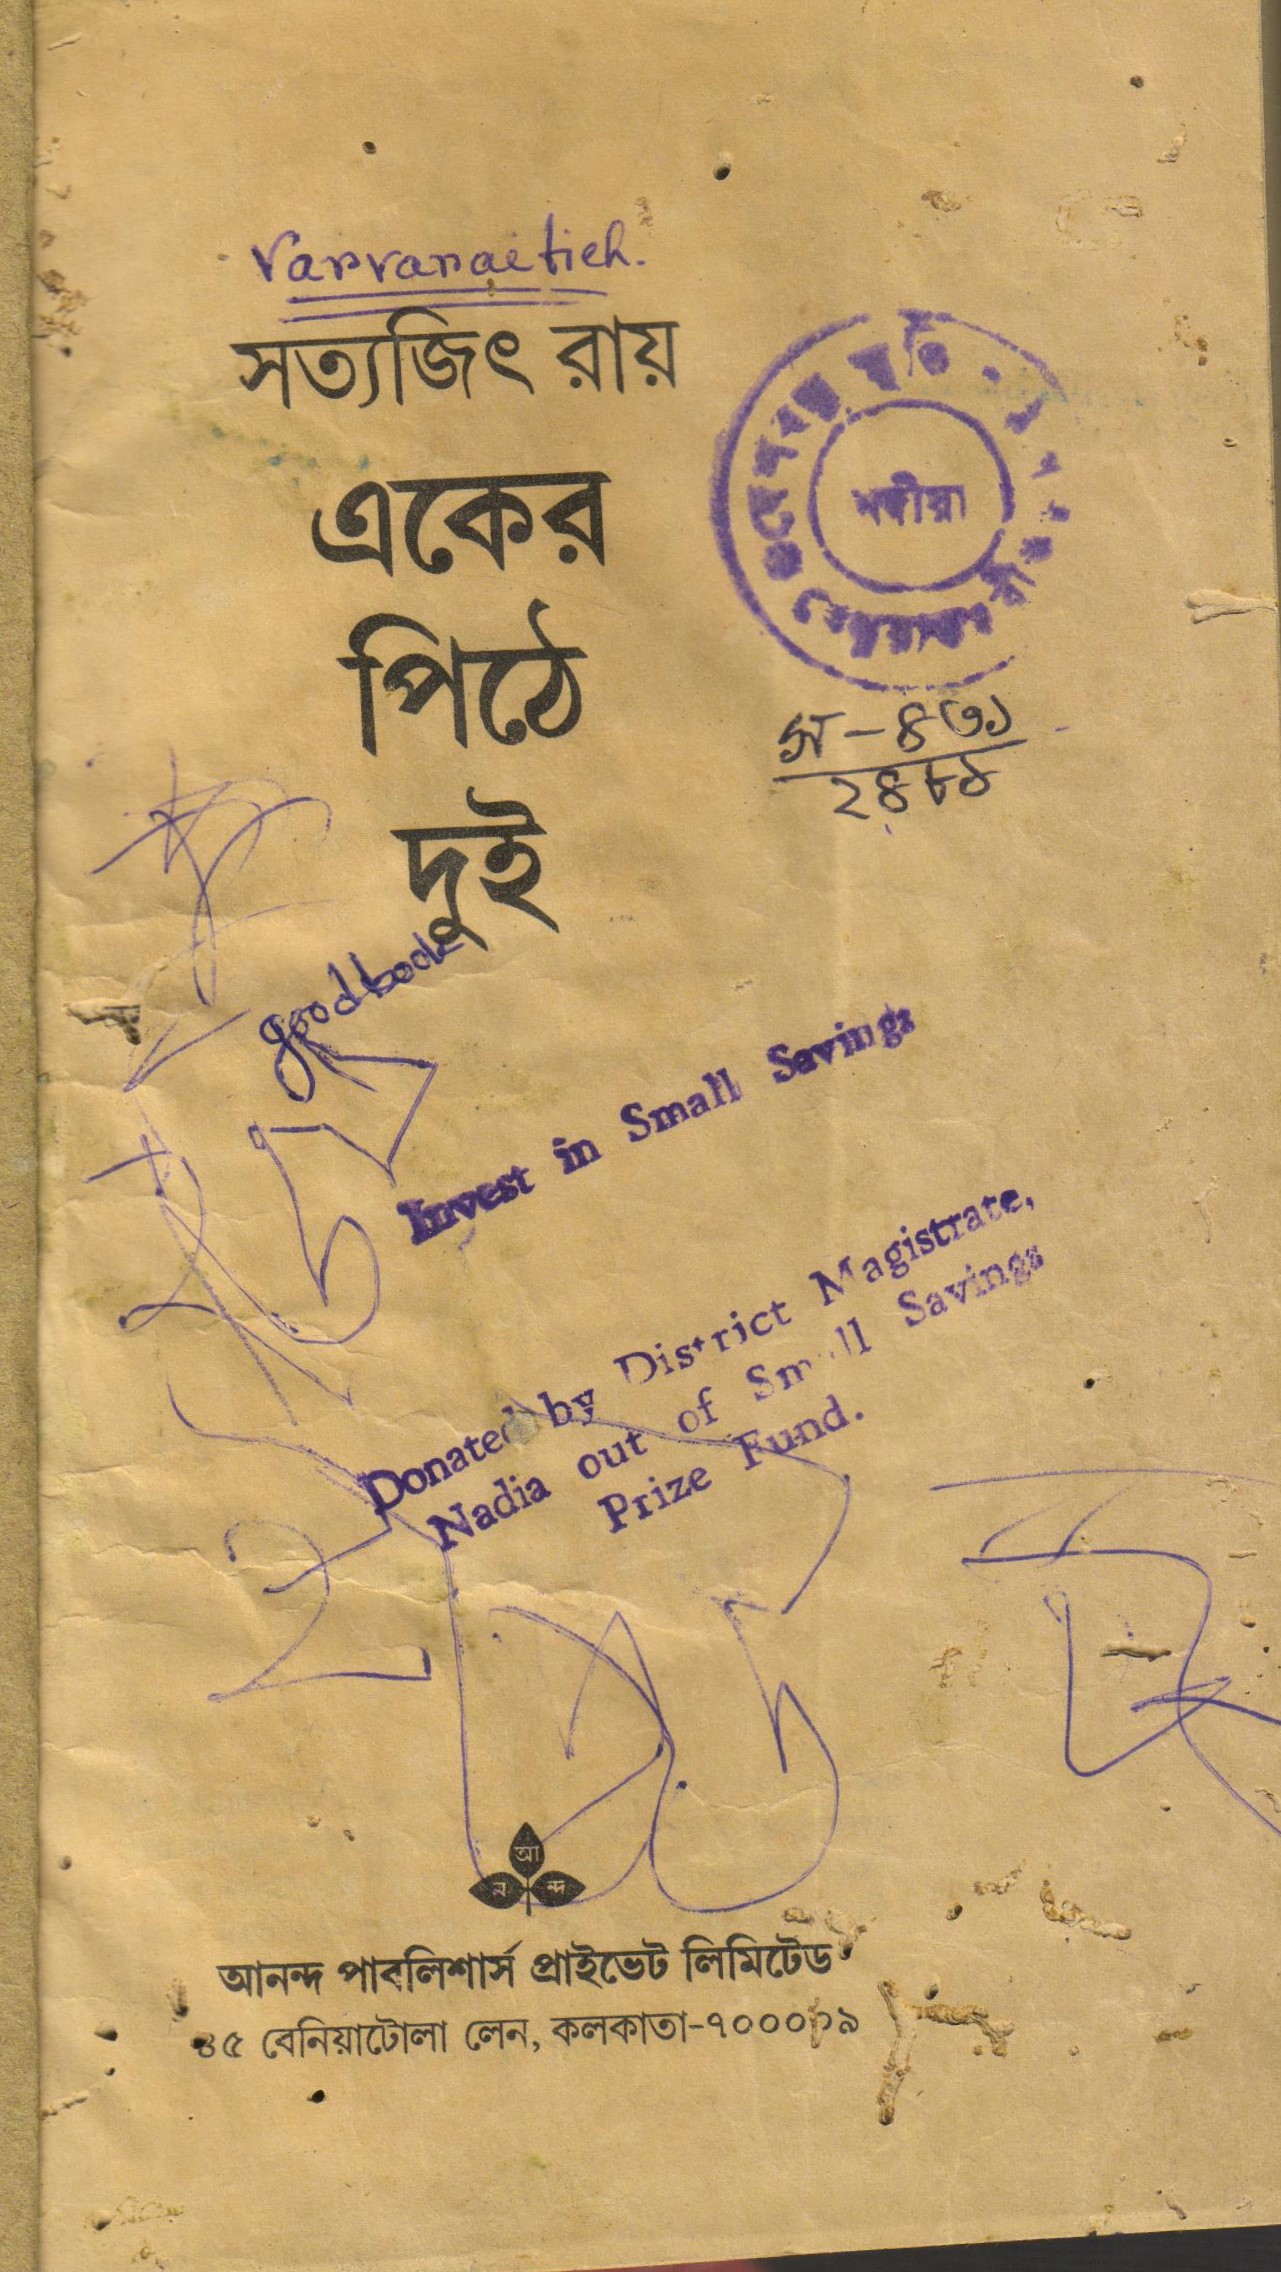 সত্যজিৎ রায়
একের
পিঠে
দুই
নদীয়া
স-৪৩১
২৪৮৪
good book
Invest in Small Savings
Donated by District Magistrate,
Nadia out of Small Savings
Prize Fund.
আ
ন ন্দ
আনন্দ পাবলিশার্স প্রাইভেট লিমিটেড
৪৫ বেনিয়াটোলা লেন, কলকাতা-৭০০০০৯